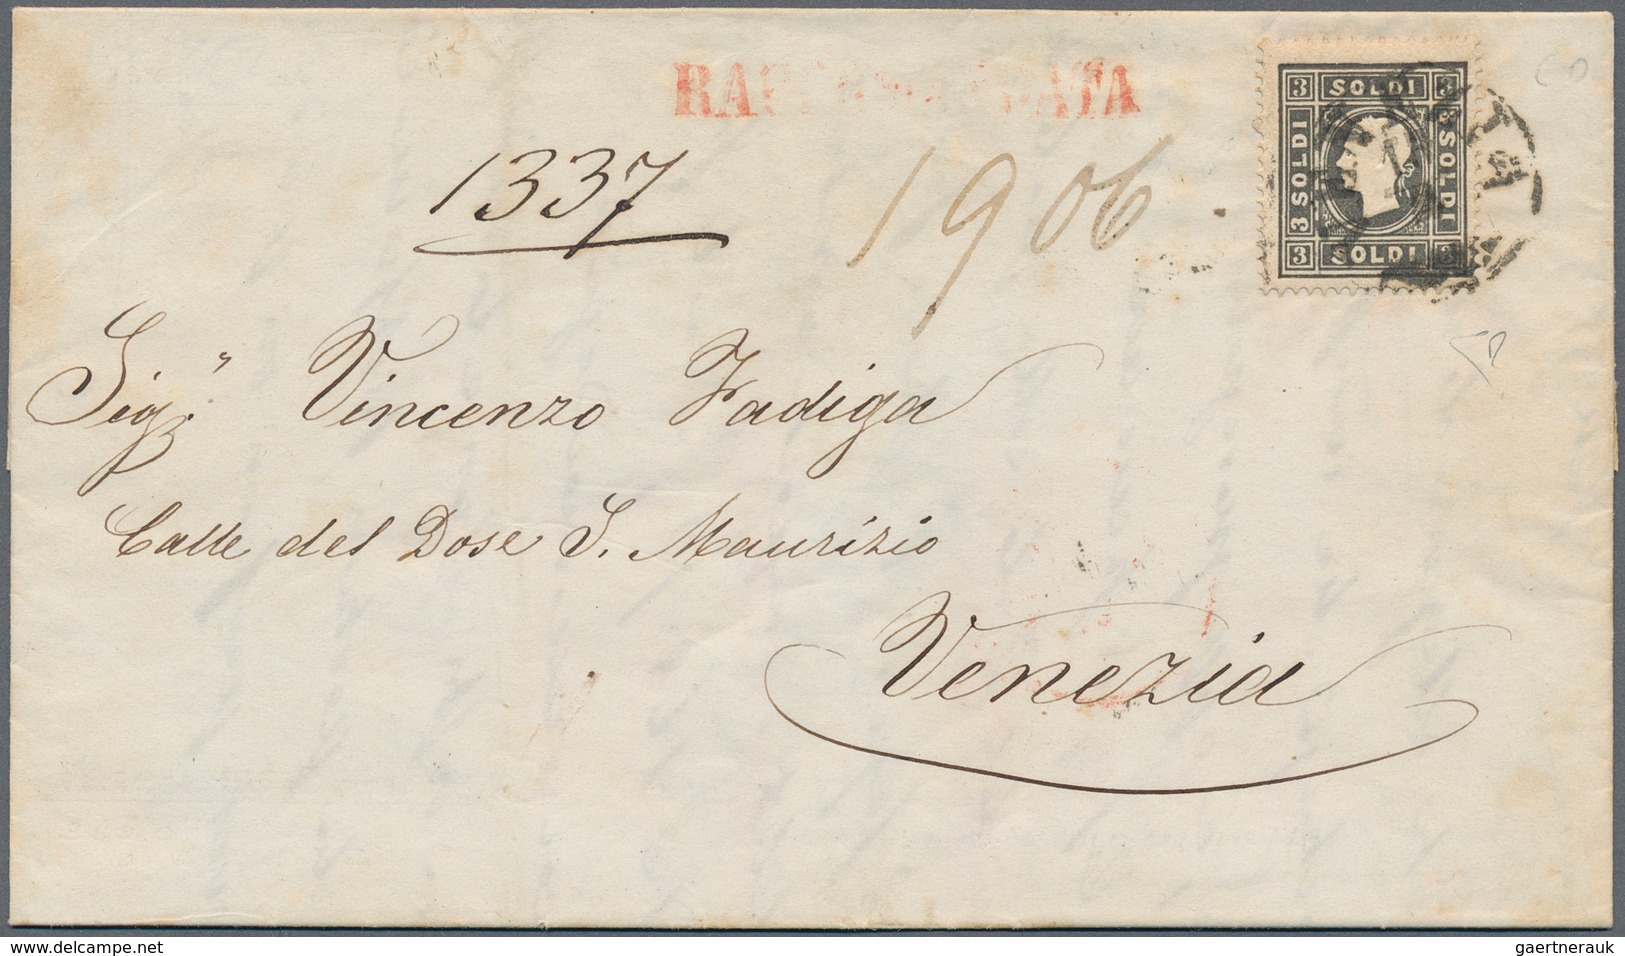 RACCOMANDATA
1337
1906
3 SOLDI 3
SOLDI
SOLDI
3 SOLDI 3
Sigr Vincenzo Fadiga
Calle del Dose S. Maurizio
Venezia
www.delcampe.net
gaertnerauk